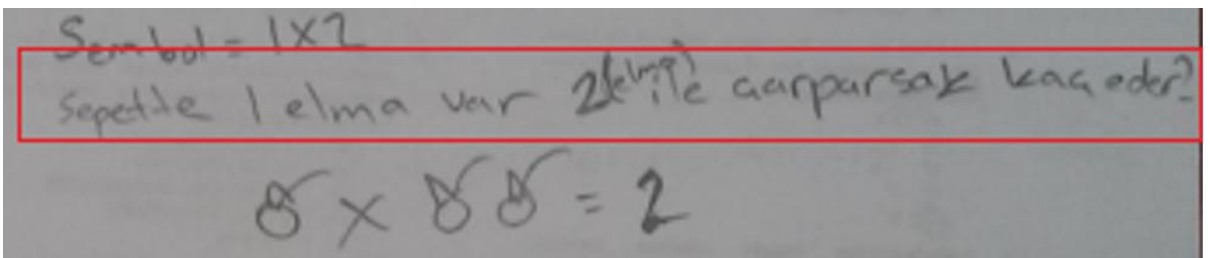 Sembol = 1x2
Sepette 1 elma var 2(elma) ile çarparsak kaç eder?
x = 2